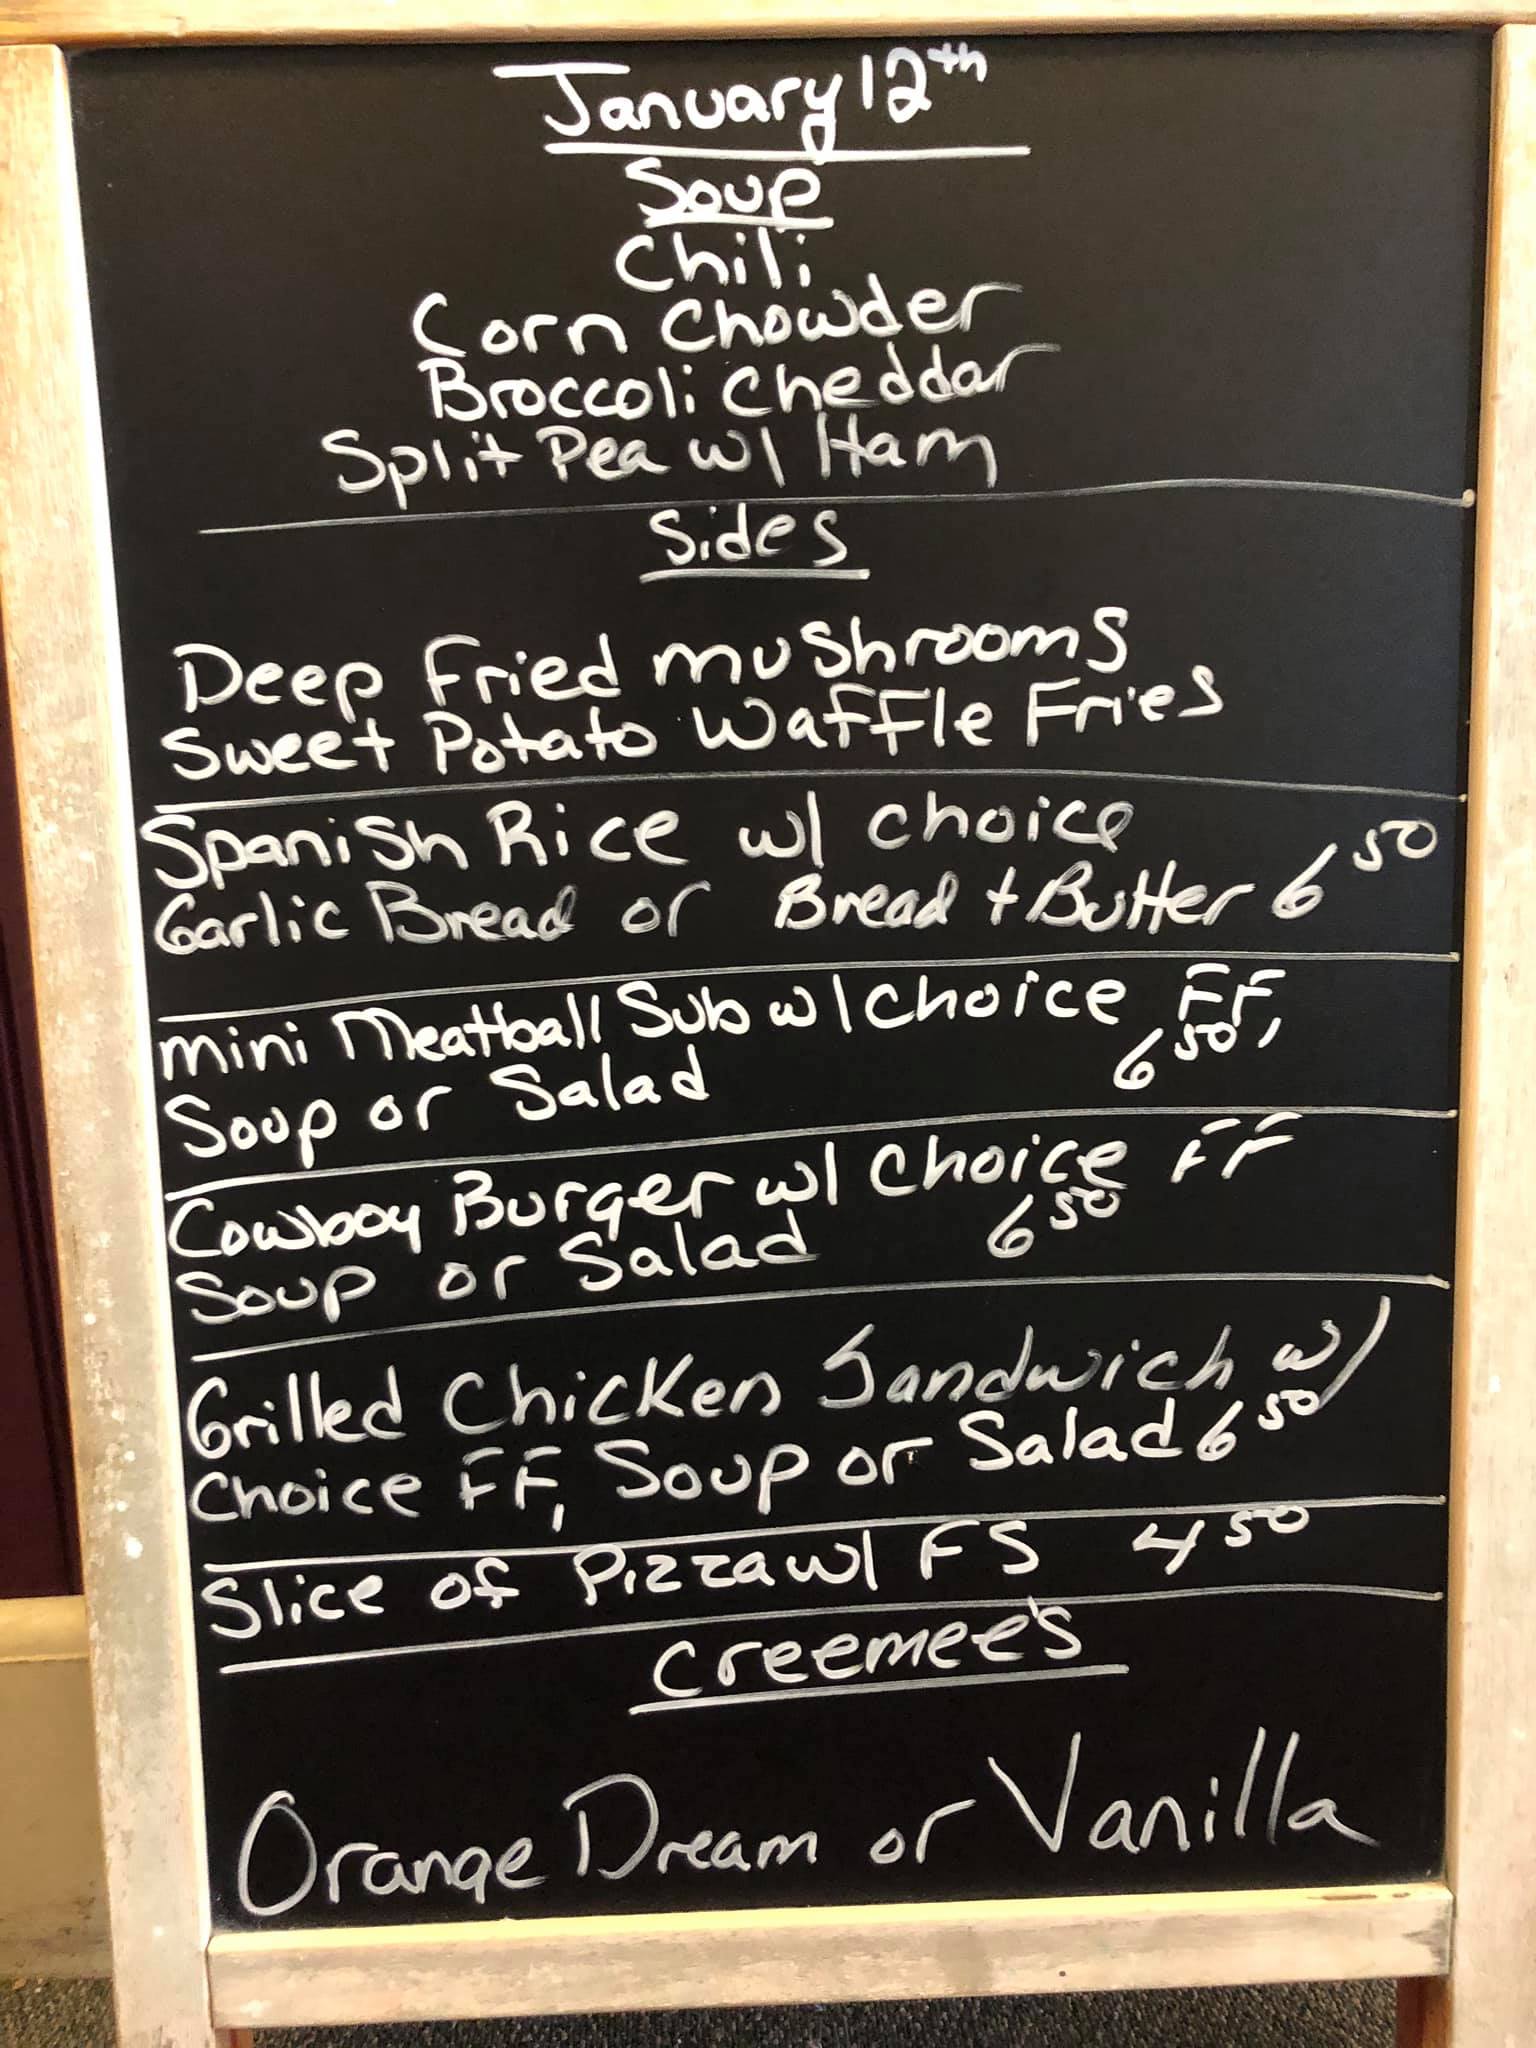 January 12th
Soup
Chili
Corn Chowder
Broccoli Cheddar
Split Pea w/ Ham
Sides
Deep Fried mushrooms
Sweet Potato Waffle Fries
Spanish Rice w/ choice
Garlic Bread or Bread + Butter 6 50
mini Meatball Sub w/ choice FF,
Soup or Salad 6 50
Cowboy Burger w/ choice FF
Soup or Salad 6 50
Grilled Chicken Sandwich w/
Choice FF, Soup or Salad 6 50
Slice of Pizza w/ FS 4 50
Creemee's
Orange Dream or Vanilla